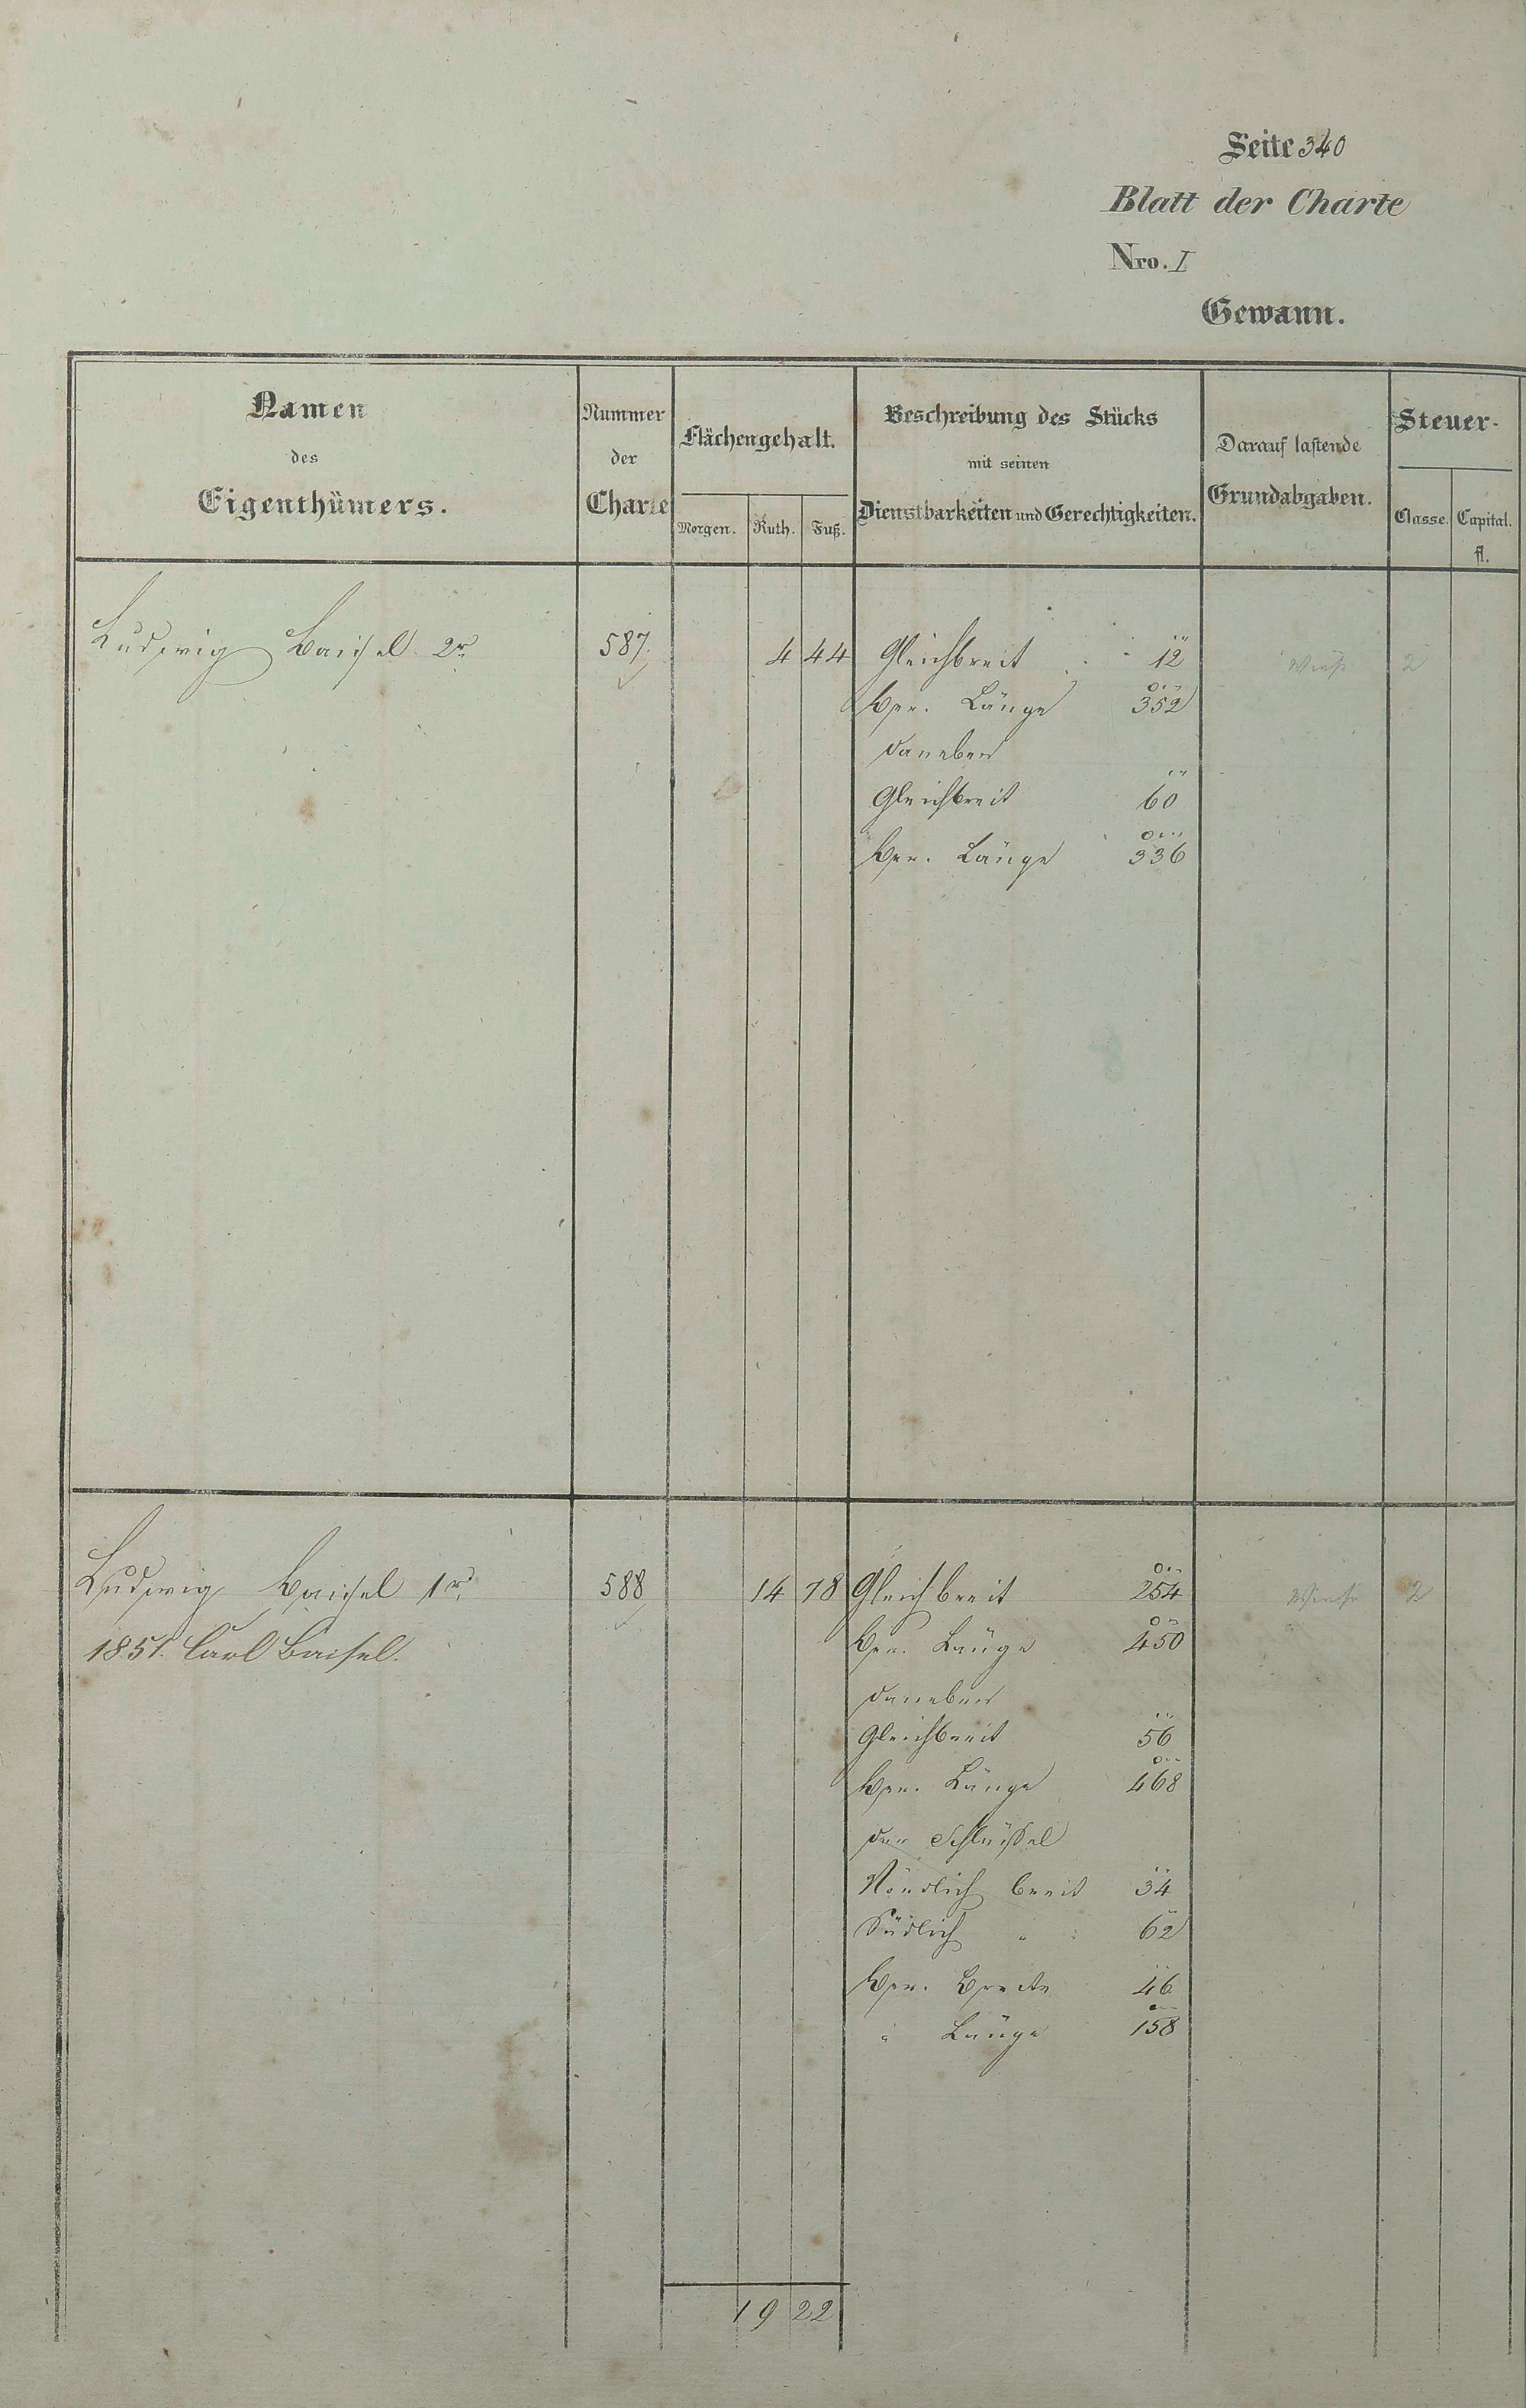 Seite 340
Blatt der Charte
Nro. I
Gewann.
Namen des Eigenthümers.
Nummer der Charte
Flächengehalt.
Morgen. Ruth. Fuß.
Beschreibung des Stücks mit seinen Dienstbarkeiten und Gerechtigkeiten.
Darauf lastende Grundabgaben.
Steuer-
Classe. Capital. fl.
Ludwig Baisel 2r 587. 4 44 Gleichbreit 12 Wiese 2
Ber. Länge 352
daneben
Gleichbreit 60
Ber. Länge 336
Ludwig Baisel 1r 588 14 78 Gleichbreit 254 Wiese 2
1851. Carl Baisel. Ber. Länge 450
daneben
Gleichbreit 56
Ber. Länge 468
der Schlüssel
Nördlich breit 34
Südlich " 62
Ber. Breite 46
" Länge 158
19 22